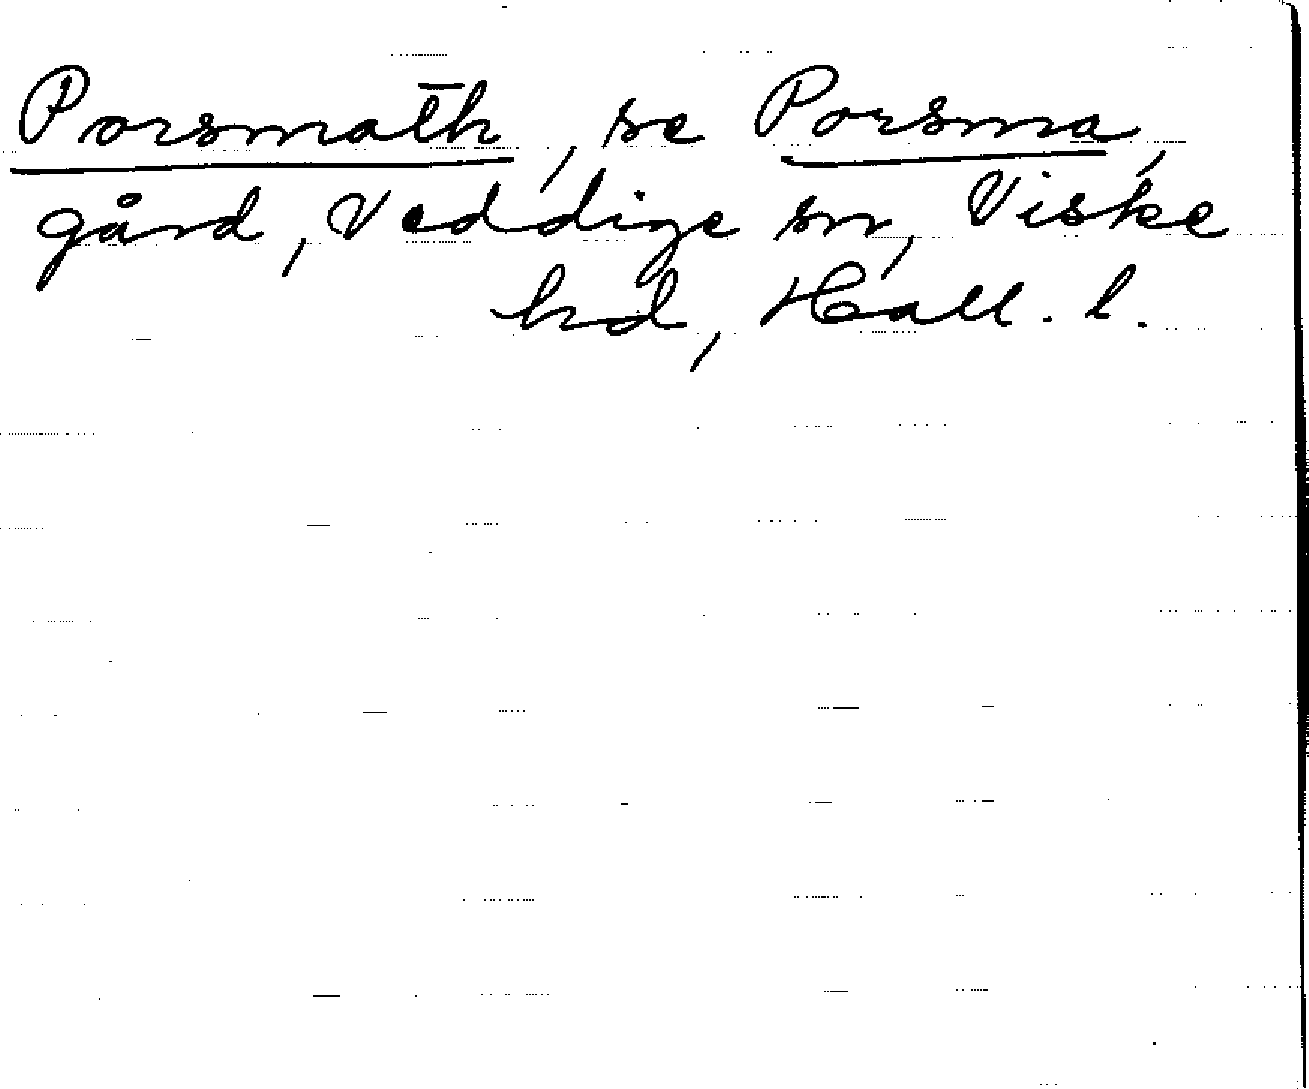 Porsmath, se Porsma,
gård, Veddige sn, Viske
hd, Hall. l.